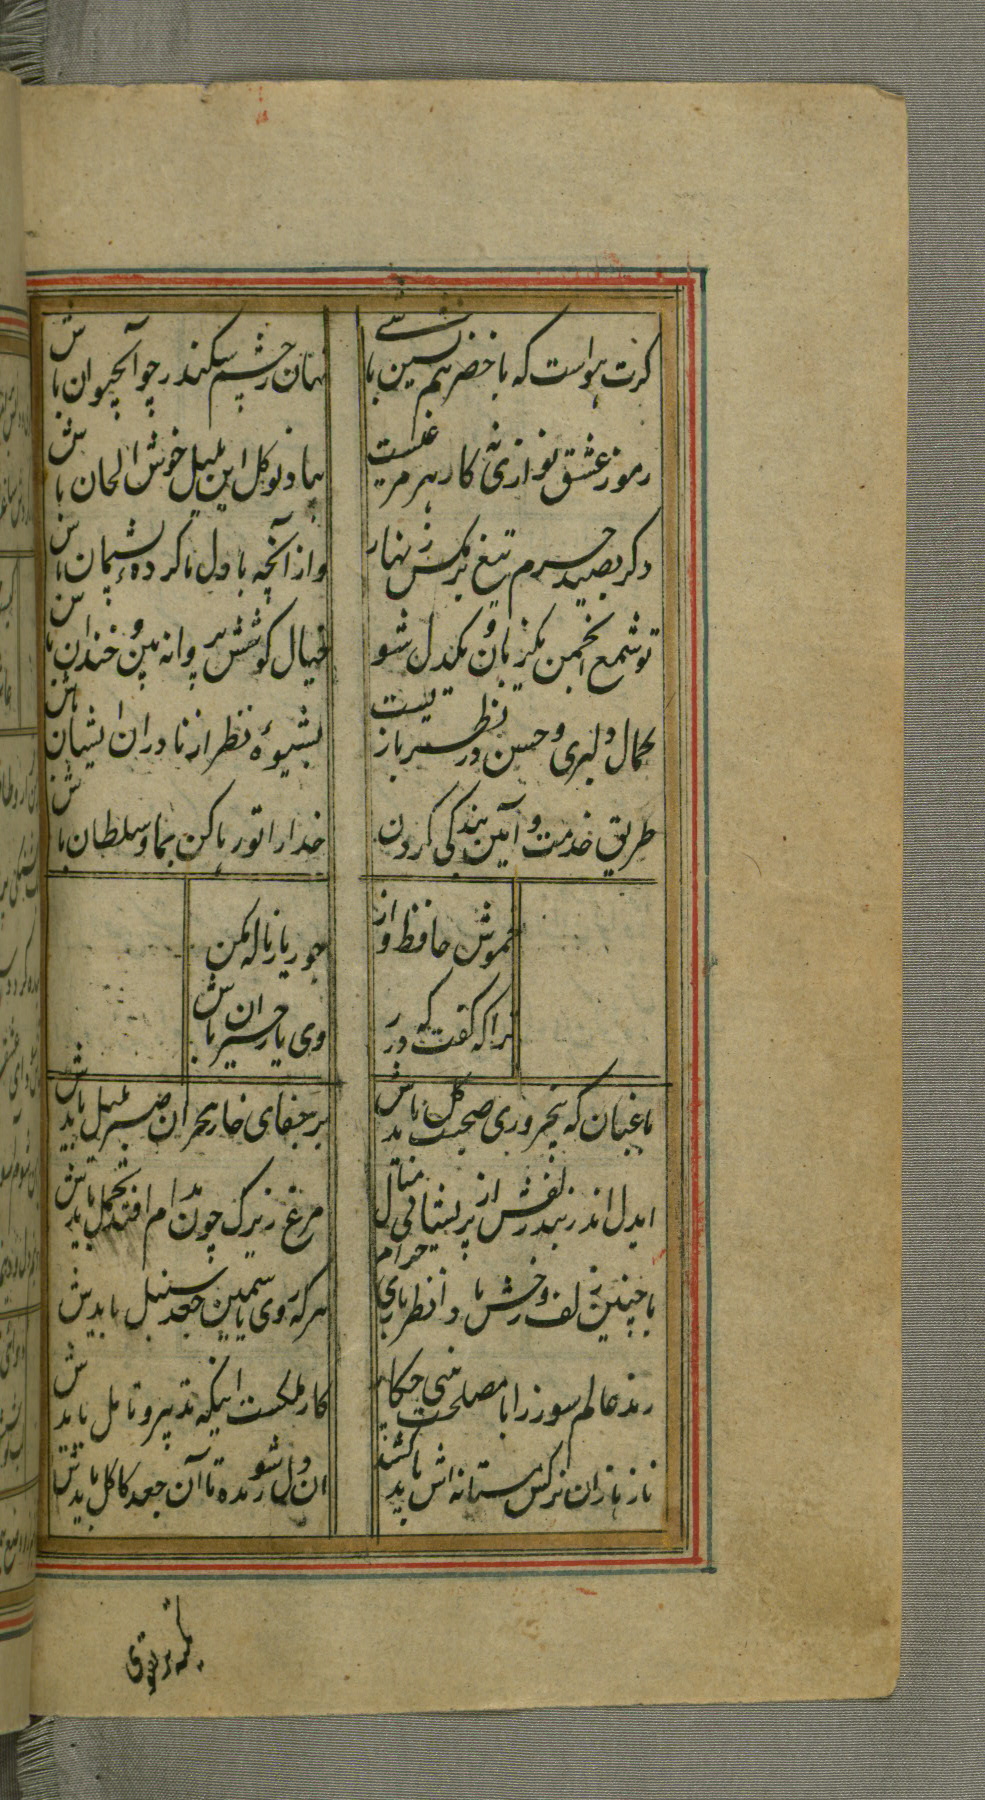 کرت هواست که با خضر همنشین باشی
نهان ز چشم سکندر چو آب حیوان باش
رموز عشق نوازی نه کار هر مرغیست
بیا و نوکل این بلبل خوش الحان باش
دکر بصید حرم تیغ برمکش زنهار
و از آنچه با دل ما کرده پشیمان باش
تو شمع انجمنی یکزبان و یکدل شو
خیال کوشش پروانه بین و خندان باش
کمال دلبری و حسن در نظربازیست
بشیوه نظر از نادران ایشان باش
طریق خدمت و آیین بندکی کردن
خدا را تو رها کن بما و سلطان باش
خموش حافظ و از جور یار ناله مکن
ترا که کفت که در روی یار حیران باش
باغبان کر پنجروزی صحبت کل بایدش
بر جفای خار هجران صبر بلبل بایدش
ایدل اندر بند زلفش از پریشانی منال
مرغ زیرک چون بدام افتد تحمل بایدش
با چنین زلف و رخش بادا نظربازی حرام
هر که روی یاسمین و جعد سنبل بایدش
رند عالم سوز را با مصلحت بینی چکار
کار ملکست اینکه تدبیر و تامل بایدش
ناز نازان نرکس مستانه اش باید کشید
این دل شوریده تا آن جعد کاکل بایدش
تکیه بر تقوی